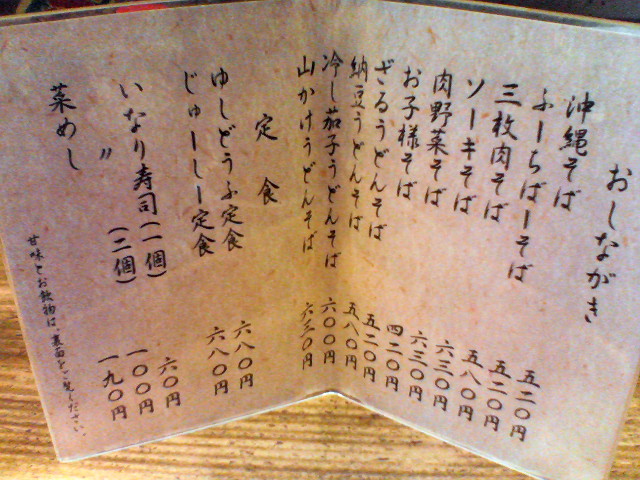 おしながき
沖縄そば 五二〇円
ふーちばーそば 五二〇円
三枚肉そば 五八〇円
ソーキそば 六三〇円
肉野菜そば 六三〇円
お子様そば 四二〇円
ざるうどんそば 五二〇円
納豆うどんそば 五八〇円
冷し茄子うどんそば 六〇〇円
山かけうどんそば 六三〇円
定食
ゆしどうふ定食 六八〇円
じゅーしー定食 六八〇円
いなり寿司(一個) 六〇円
〃 (二個) 一〇〇円
菜めし 一九〇円
甘味とお飲物は、裏面をご覧ください。